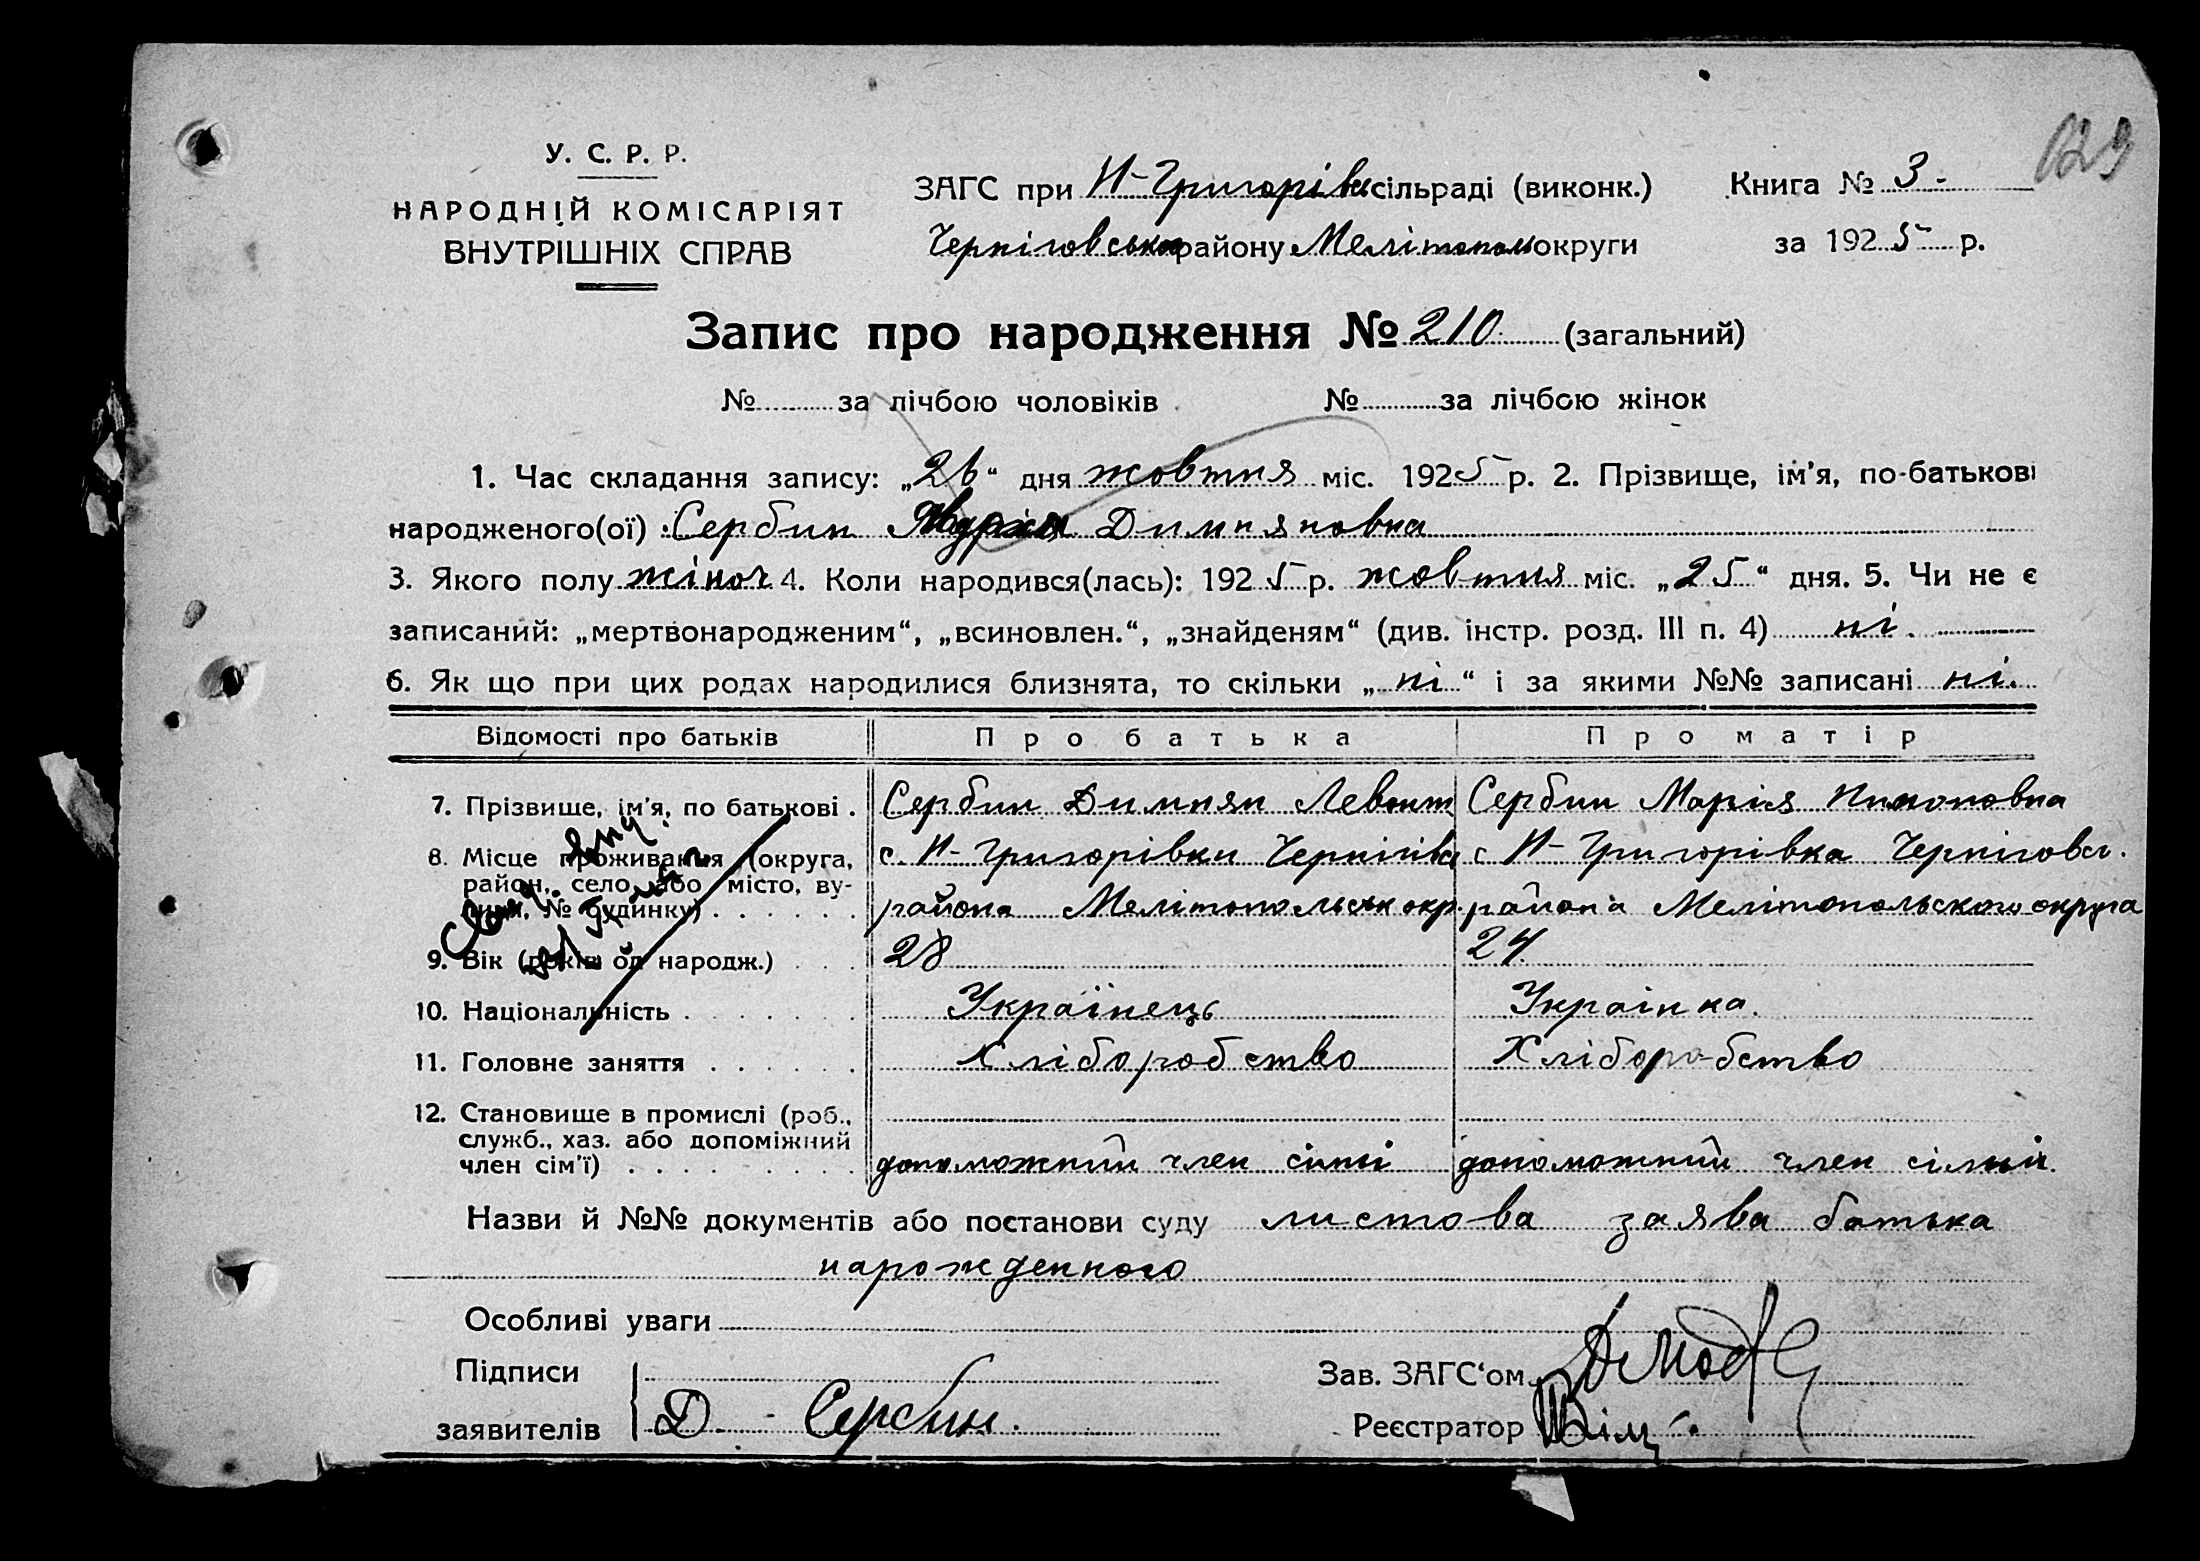 У. С. Р. Р.
НАРОДНІЙ КОМІСАРІЯТ
ВНУТРІШНІХ СПРАВ
ЗАГС при Н-Григорівк сільраді (виконк.)
Книга № 3.
Чернігівськ району Мелітопол округи
за 1925 р.
Запис про народження № 210 (загальний)
№ за лічбою чоловіків № за лічбою жінок
1. Час складання запису: „26“ дня жовтня міс. 1925 р. 2. Прізвище, ім'я, по-батькові
народженого(ої): Сербин Димняновна
3. Якого полу жіноч 4. Коли народився(лась): 1925 р. жовтня міс. „25“ дня. 5. Чи не є
записаний: „мертвонародженим“, „всиновлен.“, „знайденям“ (див. інстр. розд. III п. 4) ні.
6. Як що при цих родах народилися близнята, то скільки „ні“ і за якими №№ записані ні.
Відомості про батьків Про батька Про матір
7. Прізвище, ім'я, по батькові . Сербин Димнян Левонт Сербин Марія
8. Місце проживання (округа, с. Н-Григорівки Чернігівс с Н-Григорівка Черніговс.
район, село, або місто, ву-
лиця, № будинку) . . . . . . района Мелітопольськ окр. района Мелітопольского округа
9. Вік (років од народж.) . . . 28 24
10. Національність . . . . . . . Українець Украінка.
11. Головне заняття . . . . . . Хліборобство Хліборобство
12. Становище в промислі (роб.,
служб., хаз. або допоміжний
член сім'ї) . . . . . . . . допоможний член сімьі допоможний член сімьи.
Назви й №№ документів або постанови суду листова заява батька
нарожденного
Особливі уваги
Підписи
Зав. ЗАГС'ом
заявителів Д. Сербин.
Реєстратор